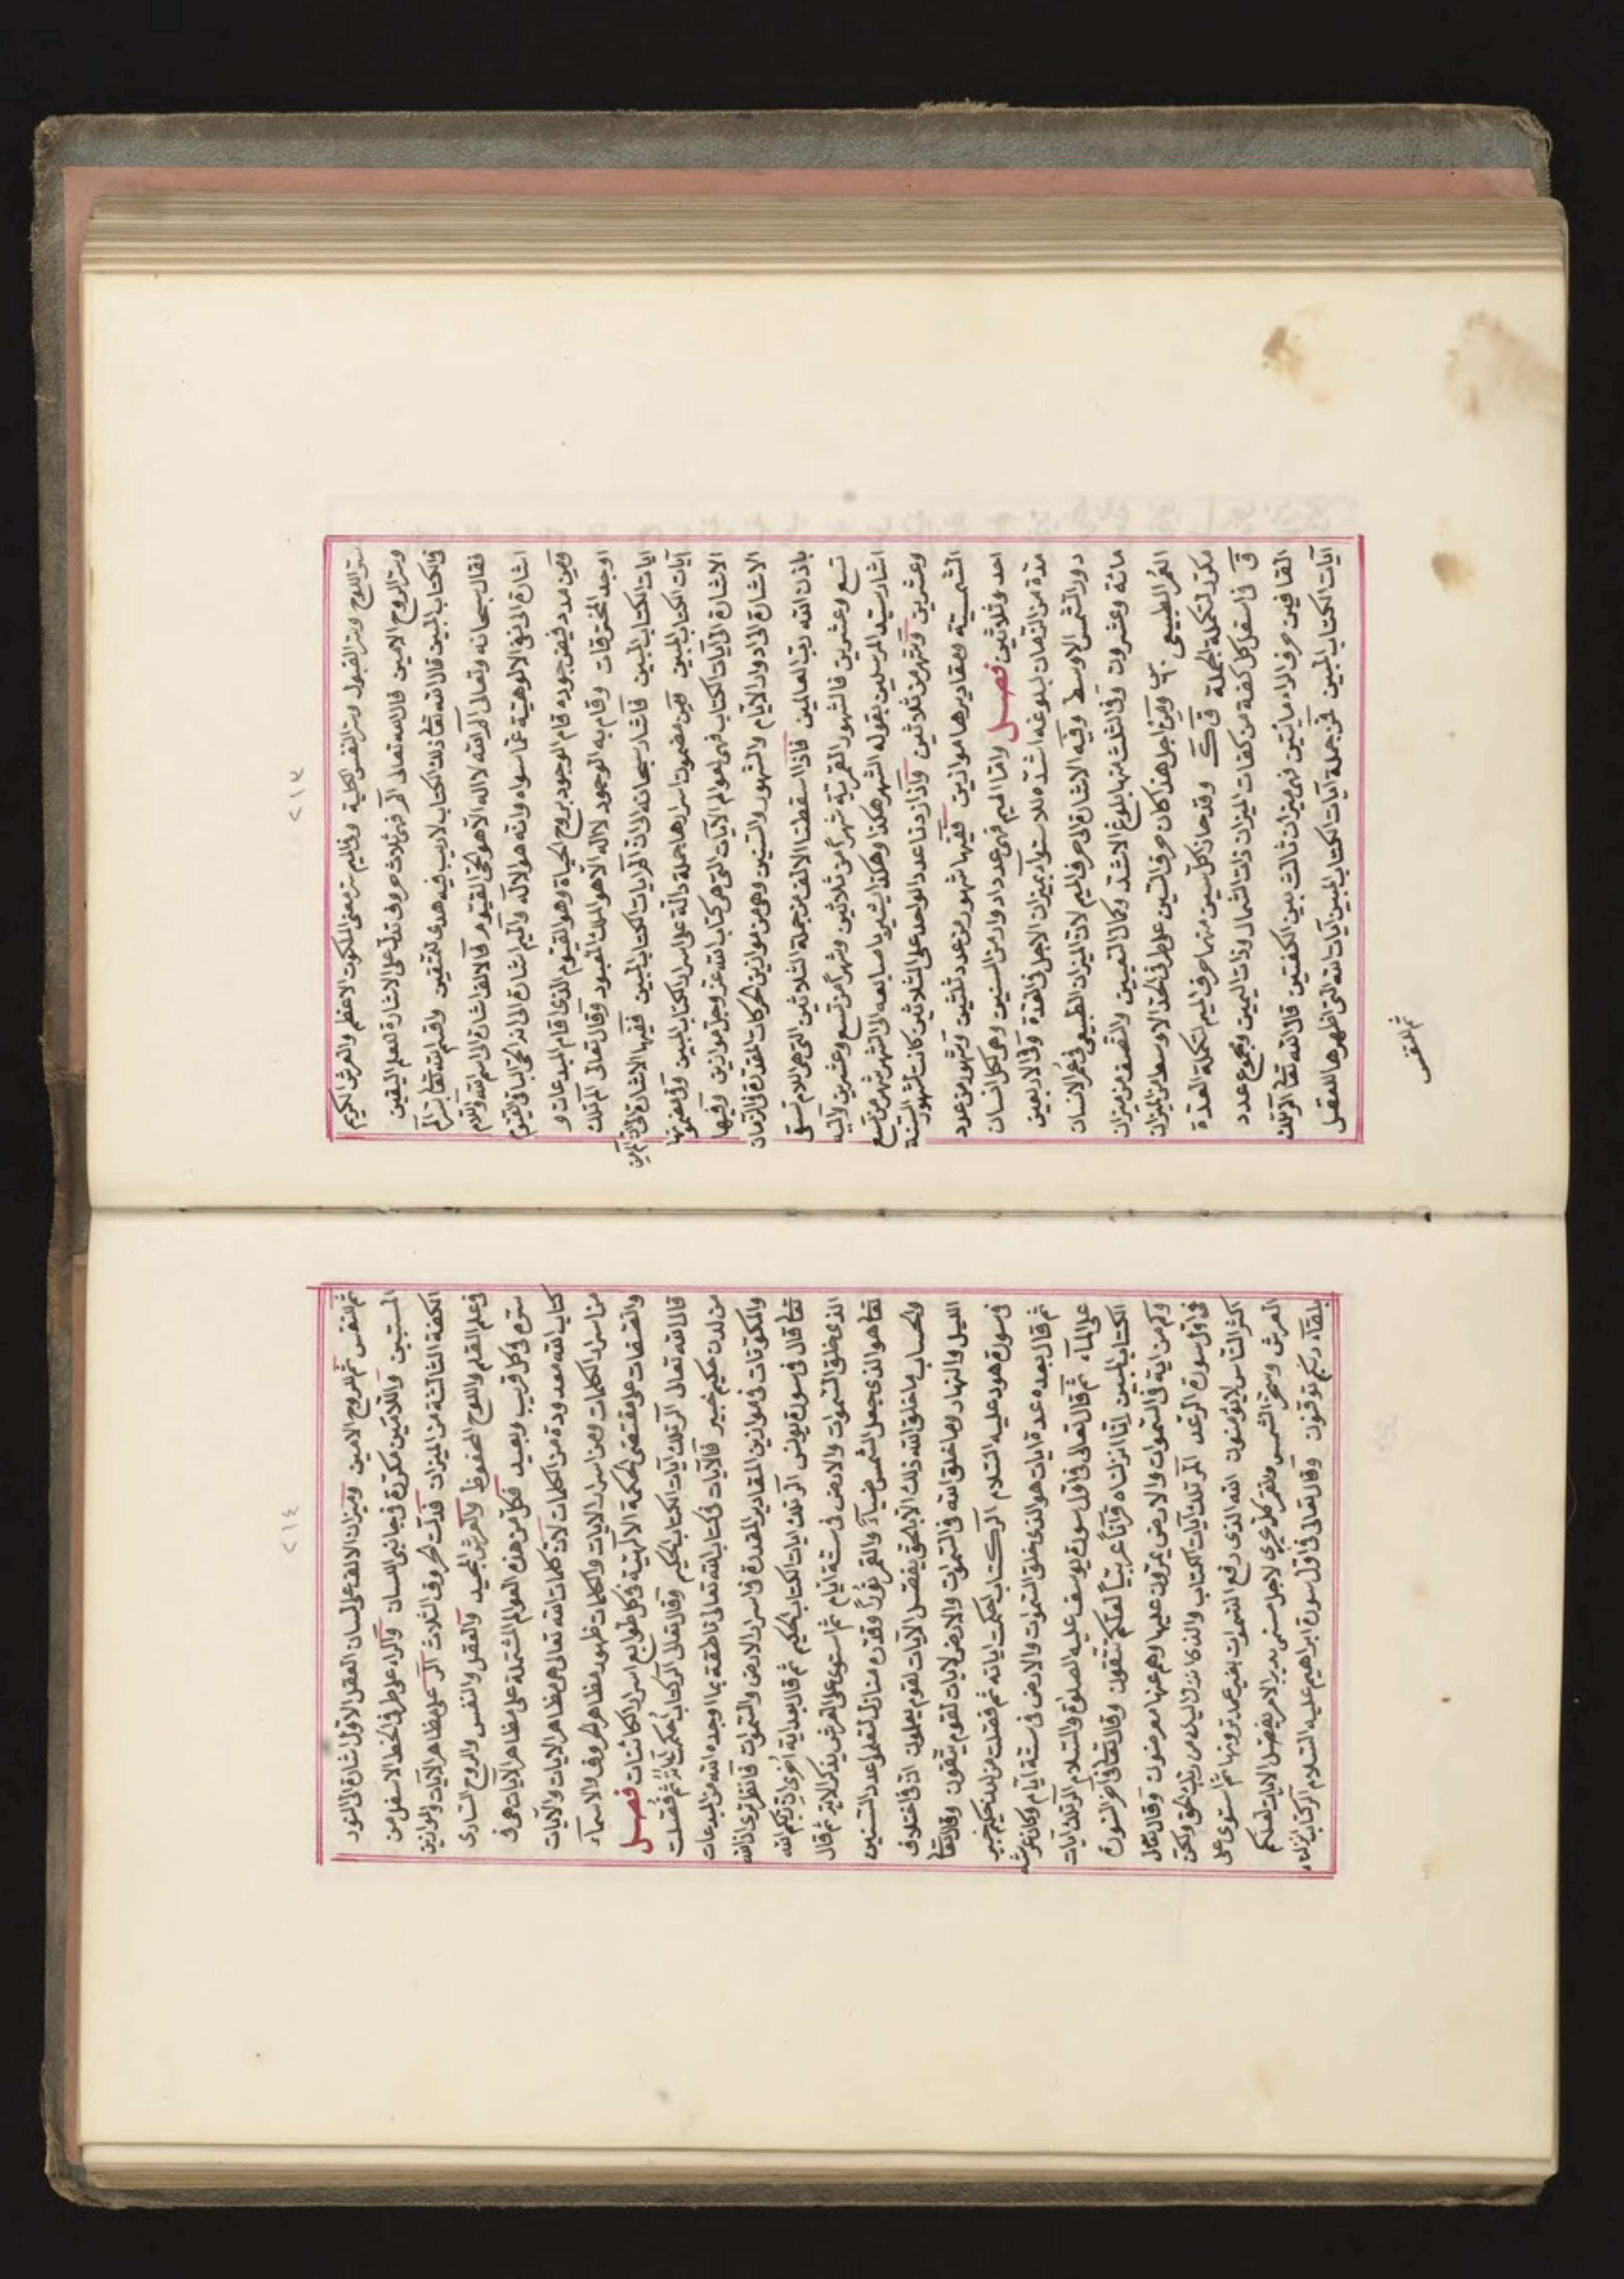 ٢١٣
سر اللوح وسر القبول وسر النفس الكلية وفي الميم سر معنى الملكوت الاعظم والعرش الكريم
وسر الروح الامين قال الله تعالى الم فهي ثلاث حروف تدل على الاشارة لتعلم اليقين
في الكتاب المبين قال الله تعا الم ذلك الكتاب لا ريب فيه هدى للمتقين واقسم الله تعا بسر الم
فقال سبحانه وتعالى الم الله لا اله الا هو الحي القيوم فالالف اشارة الى اسم الله واللام
اشارة الى نفي الالوهية عما سواه وانه هو الاله والميم اشارة الى انه الحي الباقي القيوم
ومن مدد فيض جوده قام الوجود بروح الحياة وهو القيوم الذي اقام المبدعات و
اوجد المخترقات وقام به الوجود لا اله الا هو الملك المعبود وقال تعالى الم تلك
ايات الكتاب المبين فاشار سبحانه الى ان الم ايات الكتاب المبين ففيها الاشارة الى ان الم من
آيات الكتاب المبين ومن مضمون اسرارها جملة دالة على اسرار الكتاب المبين وفي مضمونها
الاشارة الى آيات الكتاب فهي عوالم الآيات التي هي كتاب الله عز وجل موازين وفيها
الاشارة الى ادوار الايام والشهور والسنين وهي من موازين الحركات المقدرة في الازمان
باذن الله رب العالمين فاذا اسقطت الالف من جملة الثلاثين التي هي اللام تبقى
تسع وعشرين فالشهور القمرية شهرا من ثلاثين وشهرا من تسع وعشرين واليه
اشار سيد المرسلين بقوله الشهر هكذا وهكذا يشير باصابعه الى الشهر شهر من تسع
وعشرين وشهر من ثلاثين واذا زدنا عدد الواحد على الثلاثين كانت لشهور السنة
الشمسية ومقاديرها موازين ففيها شهور من عدد ثلثين وشهور من عدد
احد وثلاثين فصل واما الميم فهي عدد ادوار من السنين وهي لكل انسان
مدة من الزمان بلوغه اشده للاستواء بميزان الاجل في المدة وفي الاربعين
دور الشمس الاوسط وفيه الاشارة الى حرف الميم لان الميزان الطبيعي في عمر الانسان
مائة وعشرون وفي الثلث منها بلوغ الاشد وكمال التعيين والنصف من ميزان
العمر الطبيعي س ومن اجل هذا كان حرف السين على طرفي الخط الاوسط من الميزان
مكررا لتكملة الجملة ق ك وقد حاز كل سين منهما حرف الميم لتكملة العدة
ق في اسفل كل كفة من كفات الميزان ذات الشمال وذات اليمين ومجموع عدد
القافين حرف الراء مابين فهي ميزان ثالث بين الكفتين قال الله تعا الر تلك
آيات الكتاب المبين فمن جملة آيات الكتاب المبين آيات الله التي اظهرها للعقل
ثم للنفس
٢١٤
ثم للنفس ثم للروح الامين وميزان الالف على لسان العقل الاول اشارة الى النور
المستبين واللامين مكررة في جانبي اللسان والراء على طرفي الخط الاسفل من
الكفة الثالثة من الميزان فدلت الحروف الثلاث الر على مظاهر الآيات والموازين
في علم القلم واللوح المحفوظ والعرش المجيد والعقل والنفس والروح الساري
سره في كل قريب وبعيد فكل من هذه العوالم المشتملة على مظاهر الآيات هي في
كتاب الله معدودة من الكلمات لان كلمات الله تعالى هي مظاهر الايات والآيات
من اسرار الكلمات ومن اسرار الايات والكلمات ظهور مظاهر الحروف والاسماء
والصفات على مقتضى الحكمة الالهية في كل طوابع اسرار الكائنات فصل
قال الله تعالى الر تلك آيات الكتاب الحكيم وقال تعالى الر كتاب احكمت آياته ثم فصلت
من لدن حكيم خبير فالآيات في كتاب الله تعالى ناطقة بما اوجده الله من المبدعات
والمكونات في موازين المقادير المقدرة في اسرار الارض والسموات فانظر ترى ان الله
تعا قال في سورة يونس الر تلك ايات الكتاب الحكيم ثم قال بعد آية اخرى ان ربكم الله
الذي خلق السموات والارض في ستة ايام ثم استوى على العرش يدبر الامر ثم قال
تعا هو الذي جعل الشمس ضياءً والقمر نوراً وقدره منازل لتعلموا عدد السنين
والحساب ما خلق الله ذلك الا بالحق يفصل الآيات لقوم يعلمون ان في اختلاف
الليل والنهار وما خلق الله في السموات والارض لايات لقوم يتقون وقال تعا
في سورة هود عليه السلام الر كتاب احكمت اياته ثم فصلت من لدن حكيم خبير
ثم قال بعده عدة ايات هو الذي خلق السموات والارض في ستة ايام وكان عرشه
على الماء ثم قال تعالى في اول سورة يوسف عليه الصلوة والسلام الر تلك آيات
الكتاب المبين انا انزلناه قرآناً عربياً لعلكم تعقلون وقال تعا في آخر السورة
وكم من اية في السموات والارض يمرون عليها وهم عنها معرضون وقال تعالى
في اول سورة الرعد المر تلك آيات الكتاب والذي انزل اليك من ربك الحق ولكن
اكثر الناس لا يؤمنون الله الذي رفع السموات بغير عمد ترونها ثم استوى على
العرش وسخر الشمس والقمر كل يجري لاجل مسمى يدبر الامر يفصل الايات لعلكم
بلقاء ربكم توقنون وقال تعالى في اول سورة ابراهيم عليه السلام الر كتاب انزلناه